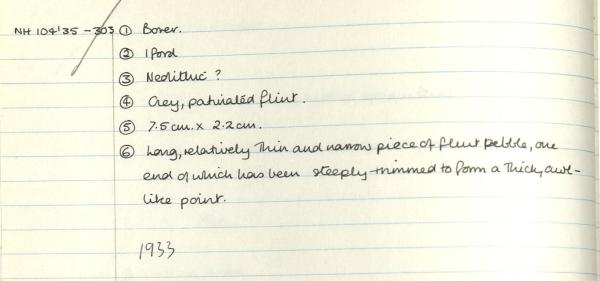 NH 104'35 - 303 ① Borer.
② Iford
③ Neolithic ?
④ Grey, patinated flint.
⑤ 7.5cm. x 2.2cm.
⑥ Long, relatively thin and narrow piece of flint pebble, one
end of which has been steeply trimmed to form a thick, awl-
like point.
1933